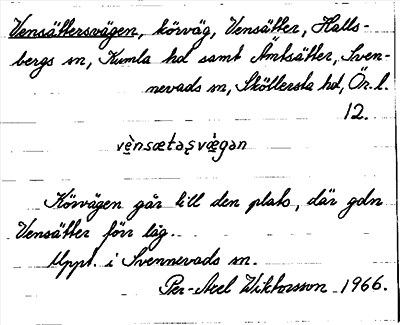 Vensättersvägen, körväg, Vensätter, Halls-
bergs sn, Kumla hd samt Åmtsätter, Sven-
nevads sn, Sköllersta hd, Ör. l.
12.
vènsætaʂvæ̀gan
Körvägen går till den plats, där gdn
Vensätter förr låg.
Uppt. i Svennevads sn.
Per-Axel Wiktorsson 1966.